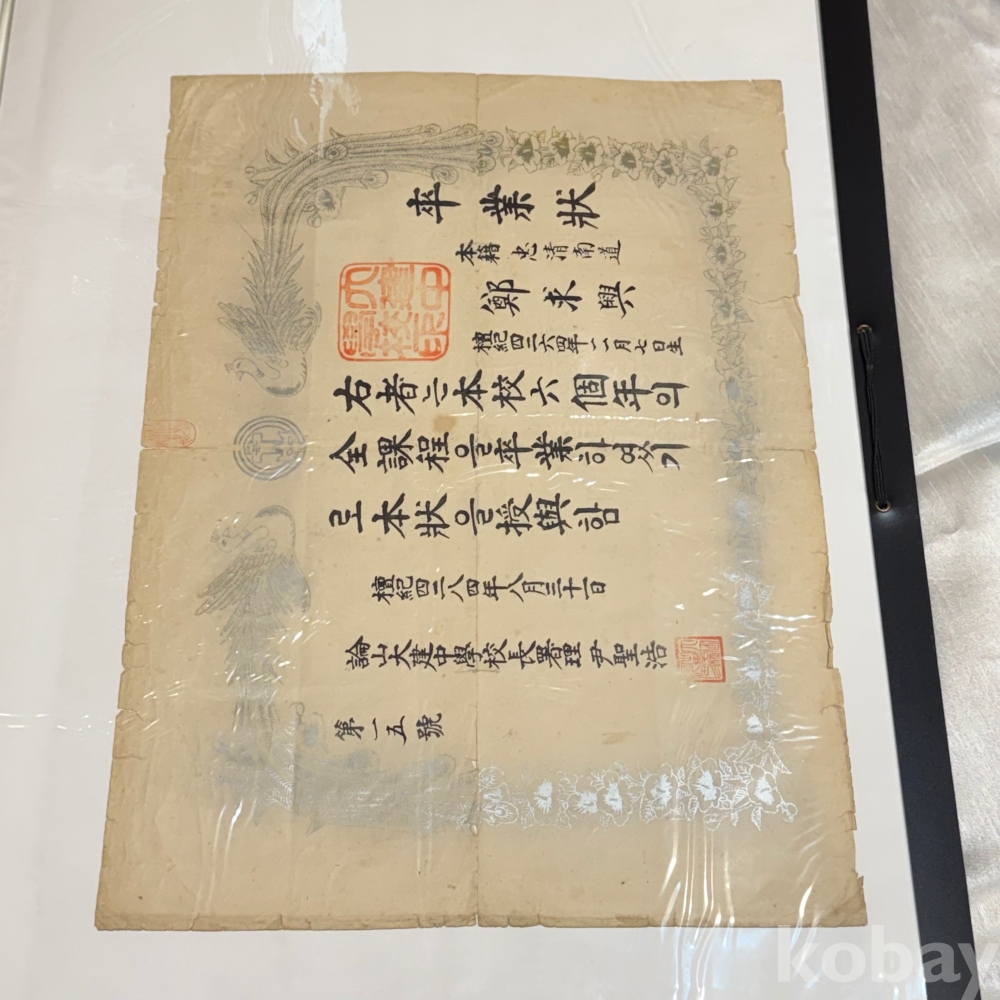 卒業狀
本籍 忠淸南道
鄭来興
檀紀四二六四年一一月七日生
大建中學校印
右者는本校六個年의
全課程을卒業하였기
로本狀을授與함
檀紀四二八四年八月三十一日
論山大建中學校長署理 尹聖浩
第一五號
kobay